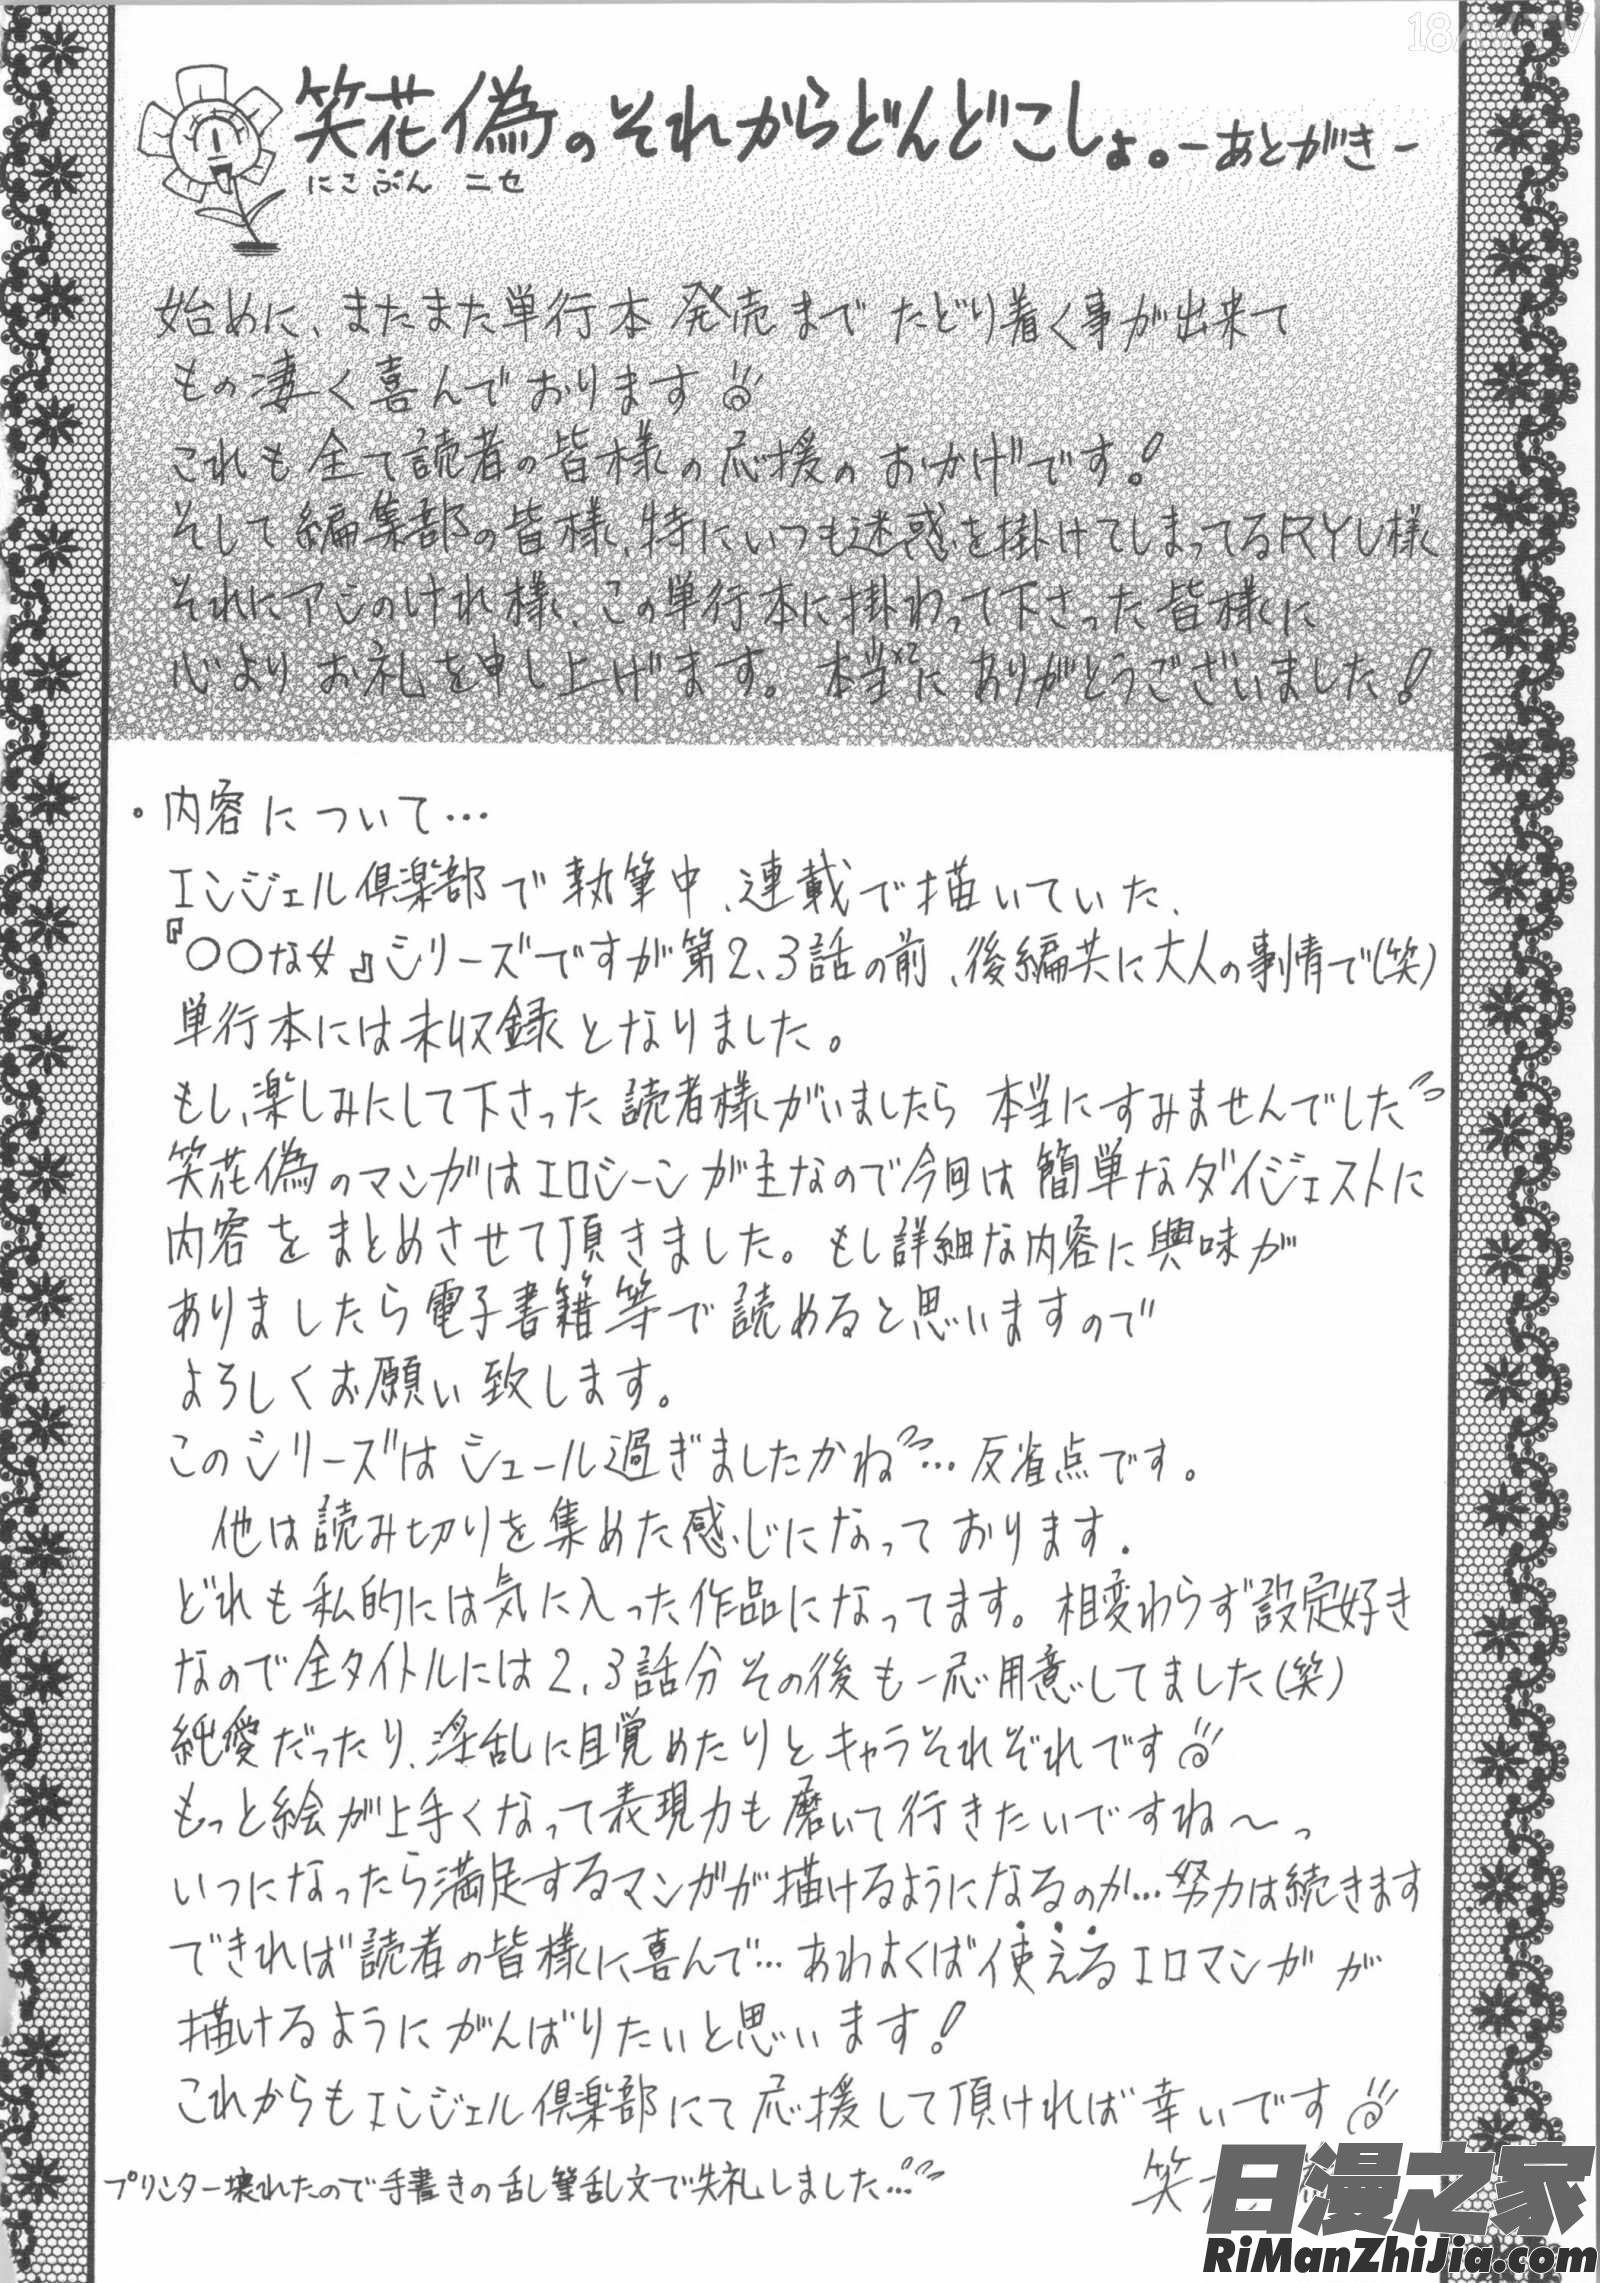 笑花偽のそれからどんどこしょ。－あとがき－
にこぶん ニセ
始めに、またまた単行本 発売まで たどり着く事が出来て
もの凄く喜んでおります
これも全て読者の皆様の応援のおかげです!
そして編集部の皆様、特にいつも迷惑を掛けてしまってるRYU様
それにアシのけれ様、この単行本に掛わって下さった皆様に
心よりお礼を申し上げます。本当×2に ありがとうございました!
・内容について…
エンジェル倶楽部で執筆中、連載で描いていた、
『○○な女』シリーズですが第2、3話の前、後編共に大人の事情で(笑)
単行本には未収録となりました。
もし、楽しみにして下さった読者様がいましたら 本当にすみませんでした
笑花偽のマンガはエロシーンが主なので今回は簡単なダイジェストに
内容をまとめさせて頂きました。もし詳細な内容に興味が
ありましたら電子書籍等で読めると思いますので
よろしくお願い致します。
このシリーズはシュール過ぎましたかね…反省点です。
他は読み切りを集めた感じになっております.
どれも私的には気に入った作品になってます。相変わらず設定好き
なので全タイトルには2、3話分その後も一応用意してました(笑)
純愛だったり、淫乱に目覚めたりとキャラそれぞれです
もっと絵が上手くなって表現力も磨いて行きたいですね〜っ
いつになったら満足するマンガが描けるようになるのか…努力は続きます
できれば読者の皆様に喜んで…あわよくば使えるエロマンガが
描けるようにがんばりたいと思います!
これからもエンジェル倶楽部にて応援して頂ければ幸いです
プリンター壊れたので手書きの乱筆乱文で失礼しました…
笑
日漫之家
RiManZhiJia.com